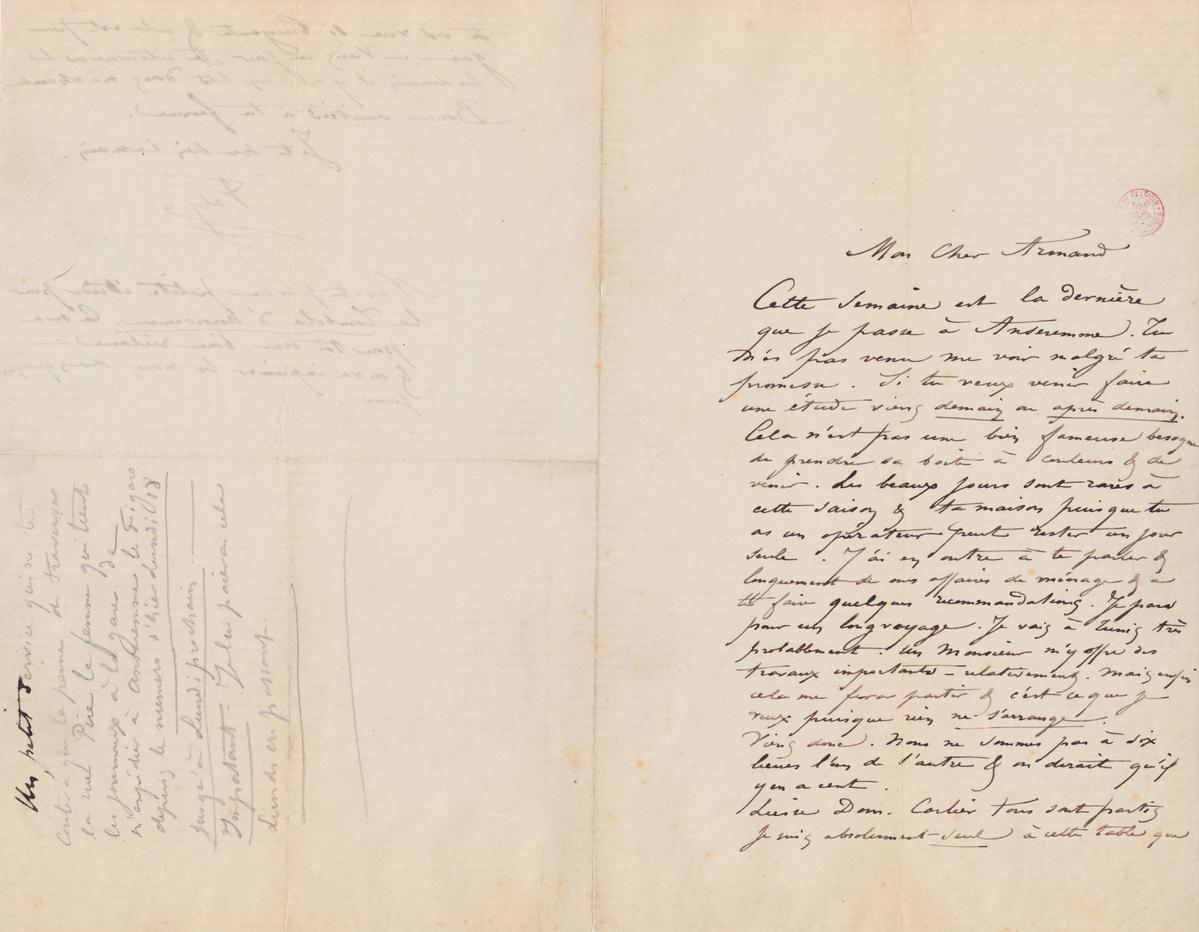 Mon Cher Armand
Cette semaine est la dernière
que je passe à Anseremme. Tu
n'es pas venu me voir malgré ta
promesse. Si tu veux venir faire
une étude viens demain ou après demain.
Cela n'est pas une bien fameuse besogne
de prendre sa boite à couleurs & de
venir. Les beaux jours sont rares à
cette saison & ta maison puisque tu
as un opérateur peut rester un jour
seule. J'ai en outre à te parler &
longuement de nos affaires de ménage & à
te faire quelques recommandations. Je pars
pour un long voyage. Je vais à Tunis très
probablement. Un Monsieur m'y offre des
travaux importants – relativement. Mais enfin
cela me fera partir & c'est ce que je
veux puisque rien ne s'arrange.
Viens donc. Nous ne sommes pas à dix
lieues l'un de l'autre & on dirait qu'il
y en a cent.
Dom. Carlier tous sont partis
je suis absolument seul à cette table que
Un petit service qui ne te
coutera que la peine de traverser
la rue. Prie la femme qui tient
les journaux à la gare de
m'expédier à Anseremme le Figaro
depuis le numero d'hier lundi 18
jusqu'à Lundi prochain.
Important. Je lui paierai cela
Lundi en passant.